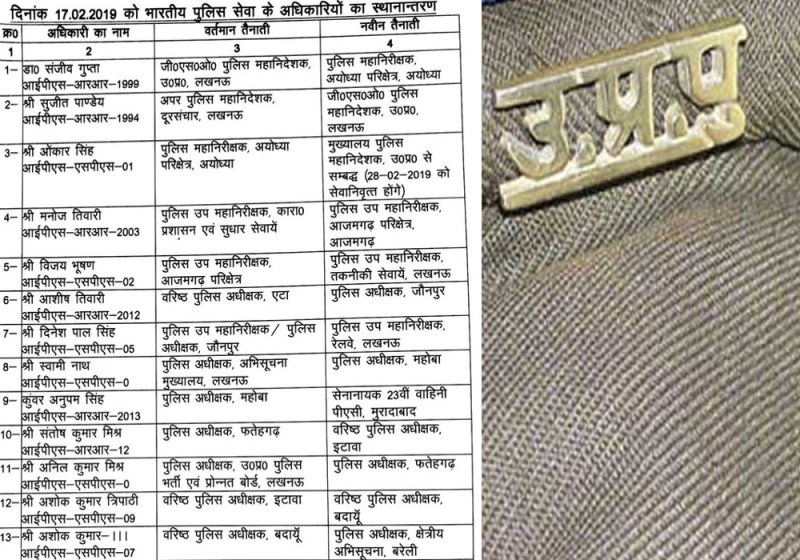 दिनांक 17.02.2019 को भारतीय पुलिस सेवा के अधिकारियों का स्थानान्तरण
क्र0 अधिकारी का नाम वर्तमान तैनाती नवीन तैनाती
1 2 3 4
1– डा0 संजीव गुप्ता जी0एस0ओ0 पुलिस महानिदेशक, पुलिस महानिरीक्षक,
आईपीएस–आरआर–1999 उ0प्र0, लखनऊ अयोध्या परिक्षेत्र, अयोध्या
2– श्री सुजीत पाण्डेय अपर पुलिस महानिदेशक, जी0एस0ओ0 पुलिस
आईपीएस–आरआर–1994 दूरसंचार, लखनऊ महानिदेशक, उ0प्र0,
लखनऊ
3– श्री ओंकार सिंह पुलिस महानिरीक्षक, अयोध्या मुख्यालय पुलिस
आईपीएस–एसपीएस–01 परिक्षेत्र, अयोध्या महानिदेशक, उ0प्र0 से
सम्बद्ध (28-02-2019 को
सेवानिवृत्त होंगे)
4– श्री मनोज तिवारी पुलिस उप महानिरीक्षक, कारा0 पुलिस उप महानिरीक्षक,
आईपीएस–आरआर–2003 प्रशासन एवं सुधार सेवायें आजमगढ़ परिक्षेत्र,
आजमगढ़
5– श्री विजय भूषण पुलिस उप महानिरीक्षक, पुलिस उप महानिरीक्षक,
आईपीएस–एसपीएस–02 आजमगढ़ परिक्षेत्र तकनीकी सेवायें, लखनऊ
6– श्री आशीष तिवारी वरिष्ठ पुलिस अधीक्षक, एटा पुलिस अधीक्षक, जौनपुर
आईपीएस–आरआर–2012
7– श्री दिनेश पाल सिंह पुलिस उप महानिरीक्षक/ पुलिस पुलिस उप महानिरीक्षक,
आईपीएस–एसपीएस–05 अधीक्षक, जौनपुर रेलवे, लखनऊ
8– श्री स्वामी नाथ पुलिस अधीक्षक, अभिसूचना पुलिस अधीक्षक, महोबा
आईपीएस–एसपीएस–0 मुख्यालय, लखनऊ
9– कुंवर अनुपम सिंह पुलिस अधीक्षक, महोबा सेनानायक 23वीं वाहिनी
आईपीएस–आरआर–2013 पीएसी, मुरादाबाद
10– श्री संतोष कुमार मिश्र पुलिस अधीक्षक, फतेहगढ़ वरिष्ठ पुलिस अधीक्षक,
आईपीएस–आरआर–12 इटावा
11– श्री अनिल कुमार मिश्र पुलिस अधीक्षक, उ0प्र0 पुलिस पुलिस अधीक्षक, फतेहगढ़
आईपीएस–एसपीएस–0 भर्ती एवं प्रोन्नत बोर्ड, लखनऊ
12– श्री अशोक कुमार त्रिपाठी वरिष्ठ पुलिस अधीक्षक, इटावा वरिष्ठ पुलिस अधीक्षक,
आईपीएस–एसपीएस–09 बदायूँ
13– श्री अशोक कुमार–III वरिष्ठ पुलिस अधीक्षक, बदायूँ पुलिस अधीक्षक, क्षेत्रीय
आईपीएस–एसपीएस–07 अभिसूचना, बरेली
उ.प्र.पु